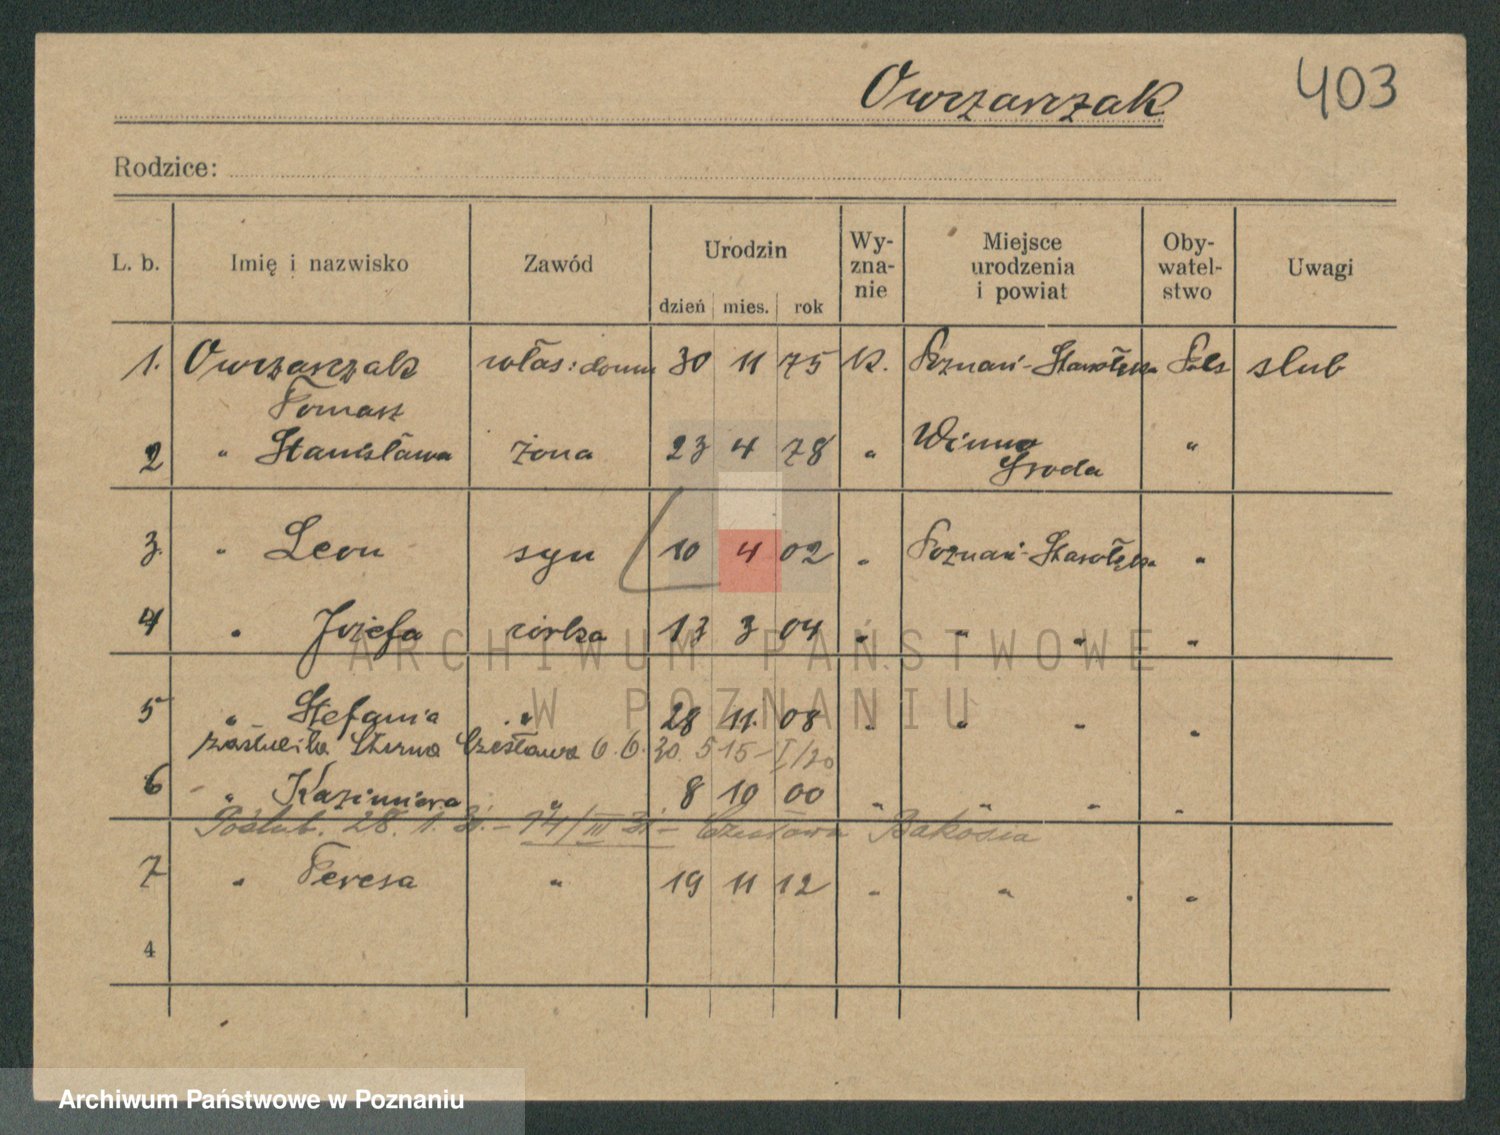 Owczarczak 403
Rodzice:
L. b. Imię i nazwisko Zawód Urodzin dzień mies. rok Wy-zna-nie Miejsce urodzenia i powiat Oby-watel-stwo Uwagi
1. Owczarczak własc: domu 30 11 75 K. Poznań-Starołęka Pols ślub
Tomasz
2 " Stanisława żona 23 4 78 " Winna "
Środa
3. " Leon syn 10 4 02 " Poznań-Starołęka "
4 " Józefa córka 13 3 04 " " " "
ARCHIWUM PAŃSTWOWE
5 " Stefania " 28 11. 08 " " " "
W POZNANIU
zaślubiła Czesława 6.6.30. 515-I/20
6 " Kazimiera " 8 10 00 " " " "
Poślub. 28. 1. 31. - 14/III 31 - Czesława Bakosia
7 " Teresa " 19 11 12 " " " "
4
Archiwum Państwowe w Poznaniu